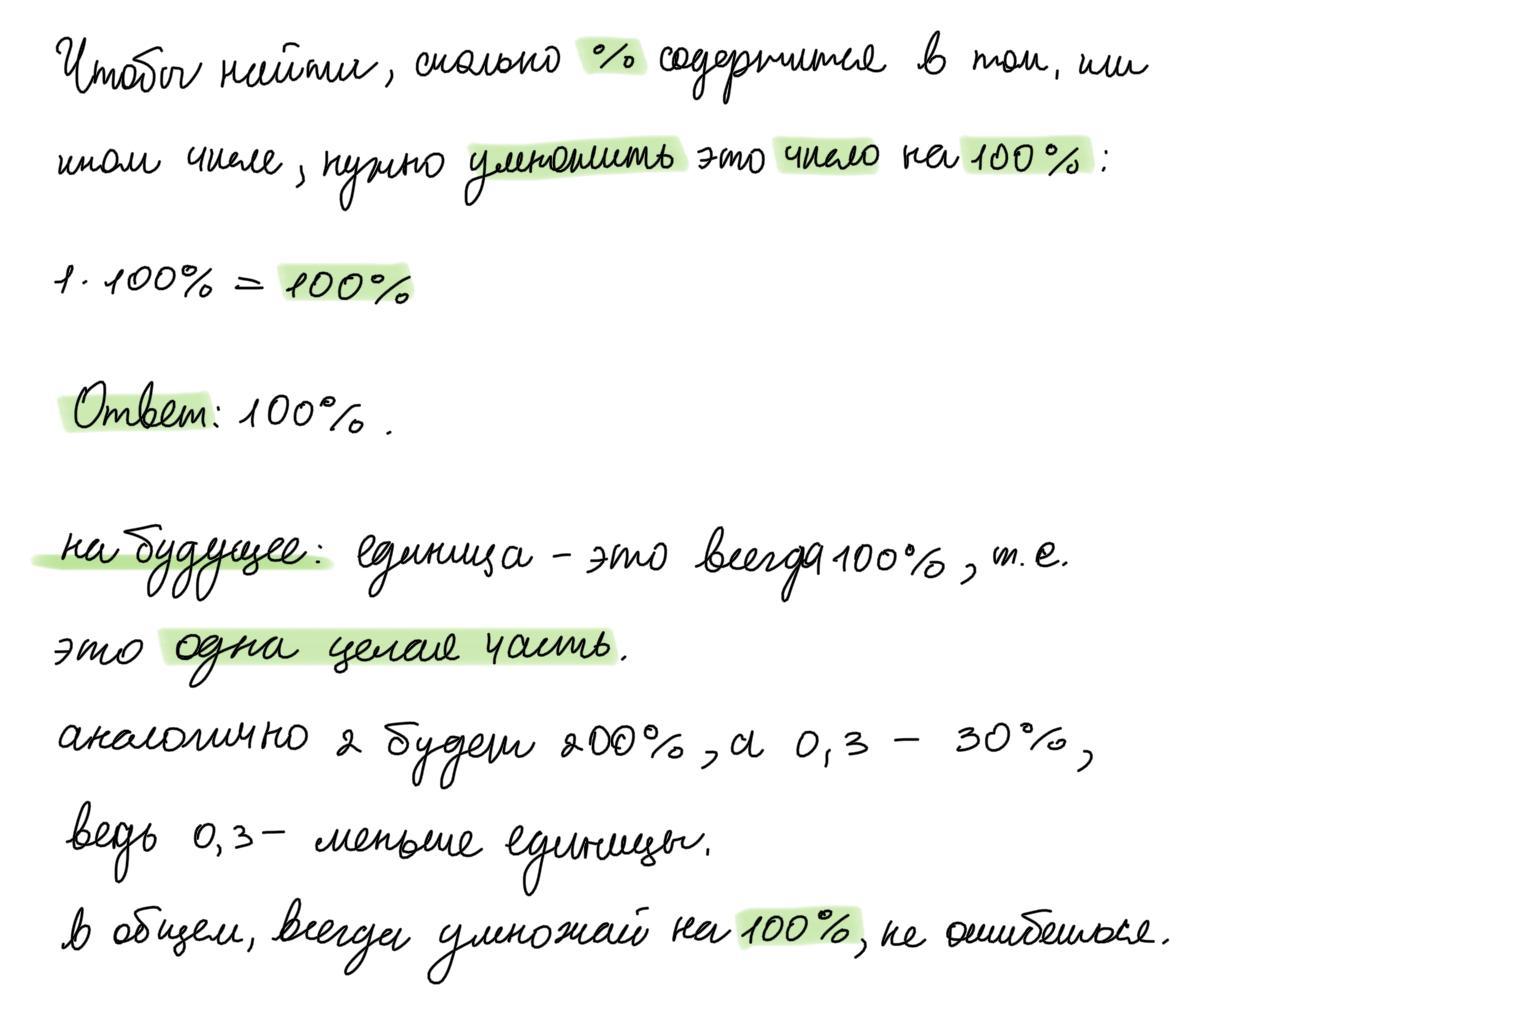 Чтобы найти, сколько % содержится в том, или
ином числе, нужно умножить это число на 100% :
1 · 100% = 100%
Ответ: 100% .
на будущее: единица – это всегда 100%, т.е.
это одна целая часть.
аналогично 2 будет 200%, а 0,3 – 30%,
ведь 0,3 – меньше единицы.
в общем, всегда умножай на 100%, не ошибешься.